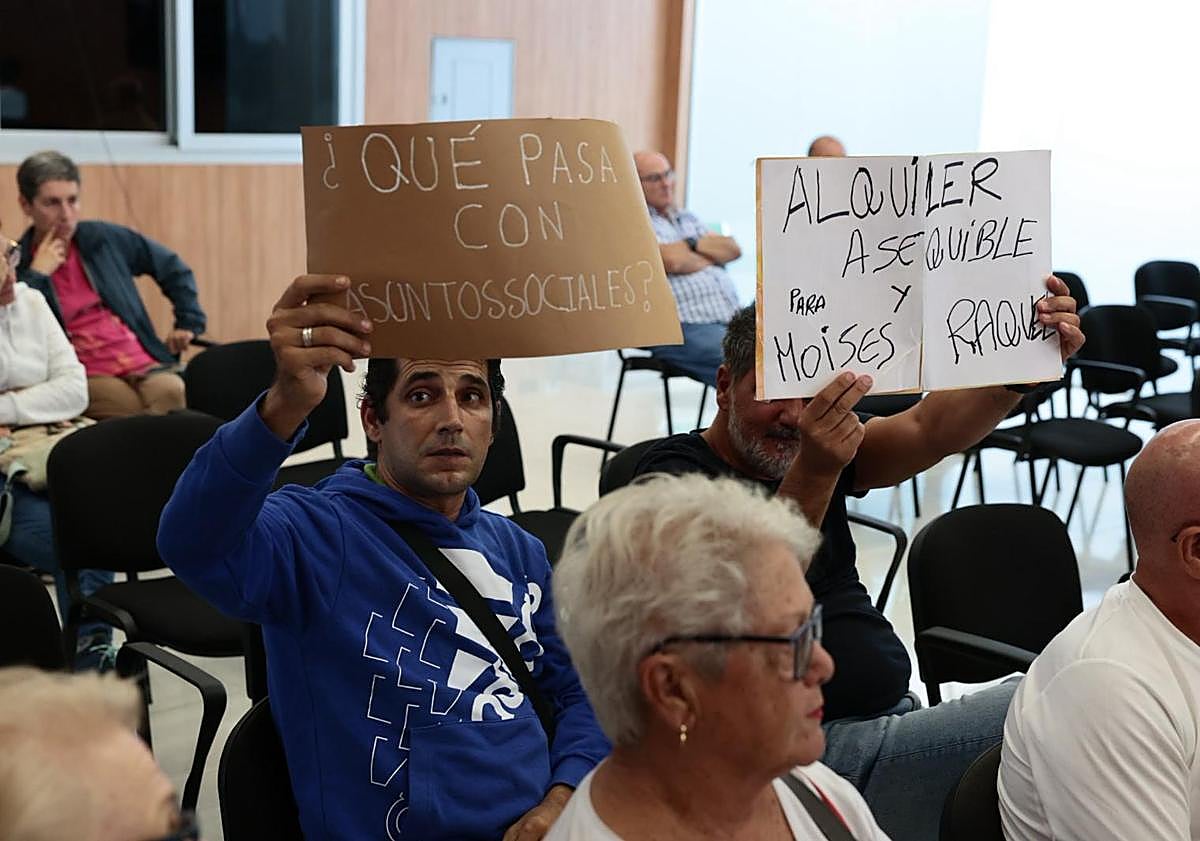 ¿QUÉ PASA
CON
ASUNTOSSOCIALES?
ALQUILER
ASEQUIBLE
PARA Y
MOISES RAQUEL